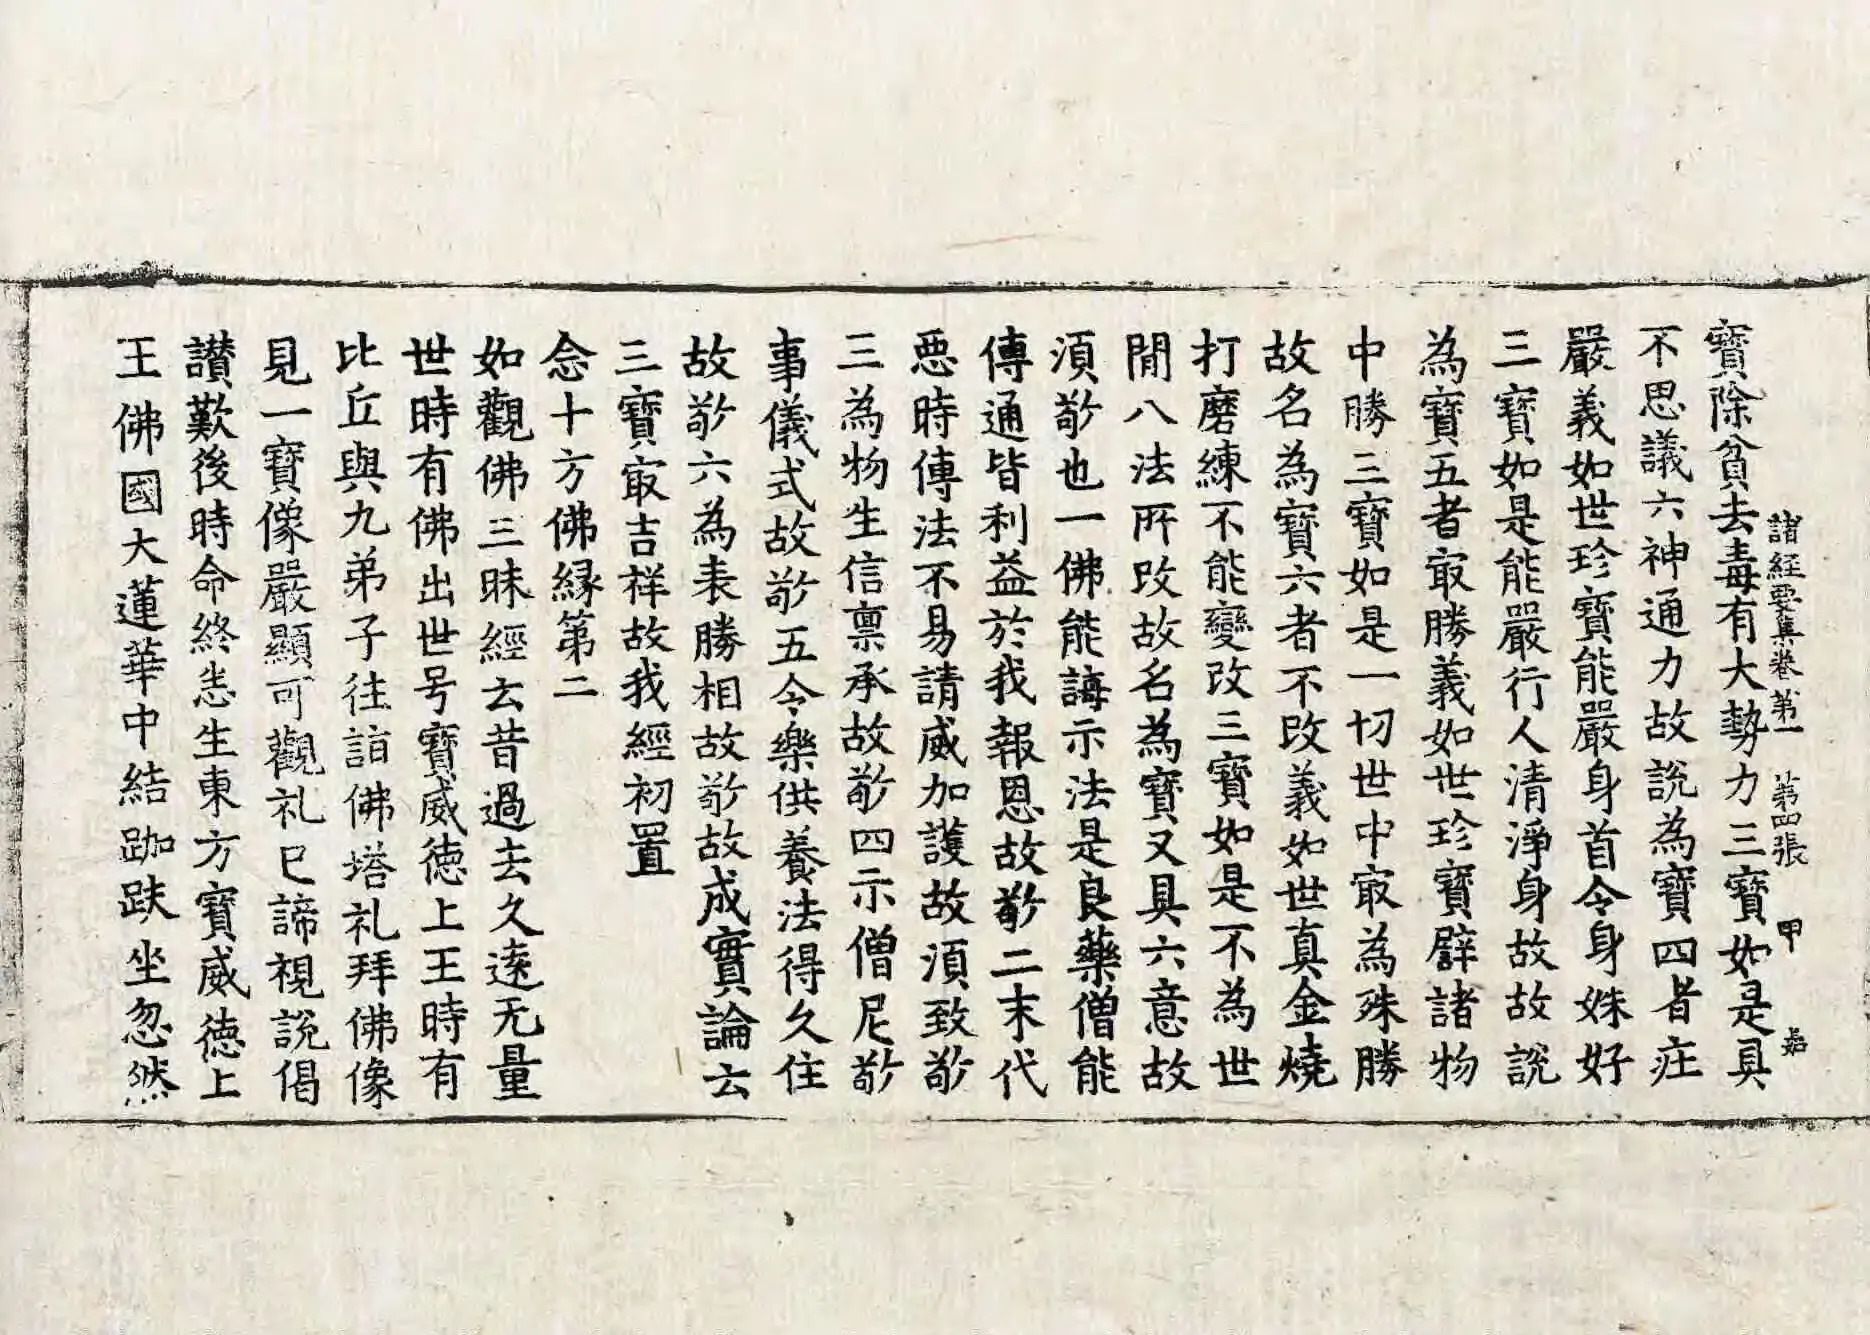 諸經要集卷第一 第四張 甲
寶除貧去毒有大勢力三寶如是具
不思議六神通力故說為寶四者疘
嚴義如世珍寶能嚴身首令身姝好
三寶如是能嚴行人清淨身故故說
為寶五者㝡勝義如世珍寶譬諸物
中勝三寶如是一切世中㝡為殊勝
故名為寶六者不改義如世真金燒
打磨練不能變改三寶如是不為世
間八法所改故名為寶又具六意故
須敬也一佛能誨示法是良藥僧能
傳通皆利益於我報恩故敬二末代
惡時傳法不易請威加護故須致敬
三為物生信稟承故敬四示僧尼敬
事儀式故敬五令樂供養法得久住
故敬六為表勝相故敬故成實論云
三寶㝡吉祥故我經初置
念十方佛緣第二
如觀佛三昧經云昔過去久遠无量
世時有佛出世号寶威德上王時有
比丘與九弟子往詣佛塔礼拜佛像
見一寶像嚴顯可觀礼已諦視說偈
讃歎後時命終悉生東方寶威德上
王佛國大蓮華中結跏趺坐忽然